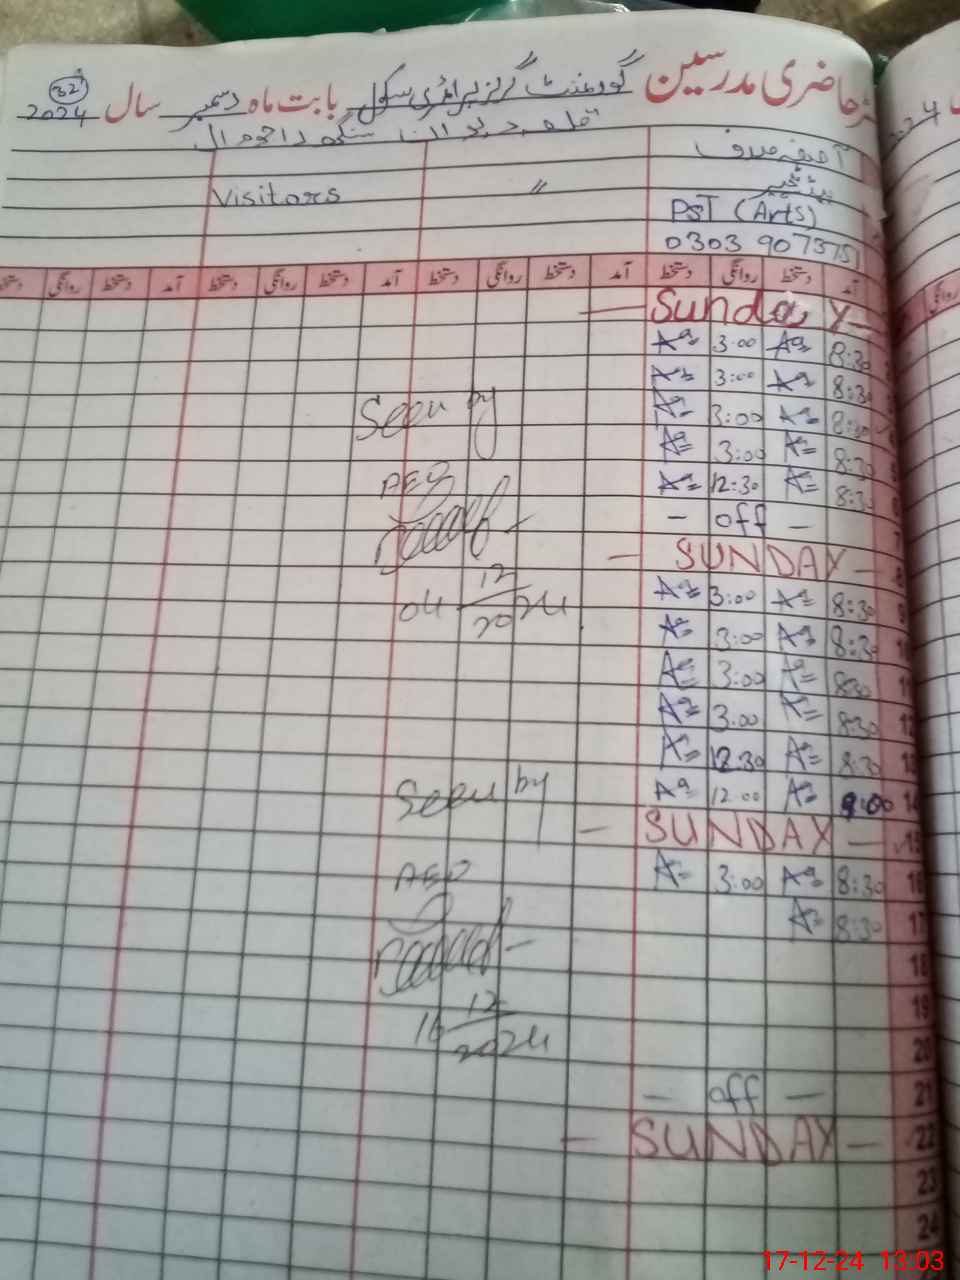 حاضری مدرسین گورنمنٹ گرلز پرائمری سکول بابت ماہ دسمبر سال 2024
32
قلعہ سنگھ
آصفہ
ہیڈ ٹیچر
Visitors 〃
PST (Arts)
0303 9073751
آمد دستخط روانگی دستخط آمد دستخط روانگی دستخط آمد دستخط روانگی دستخط آمد دستخط روانگی دستخط
— Sunday —
3:00 8:30
3:00 8:30
3:00 8:30
3:00 8:30
12:30 8:30
— off —
— SUNDAY — 8
3:00 8:30 9
3:00 8:30
3:00 8:30 11
3:00 8:30 12
12:30 8:30 13
12:00 9:00 14
— SUNDAY — 15
3:00 8:30 16
8:30 17
18
19
20
— off — 21
— SUNDAY — 22
23
24
Seen by
AEO
04 12/2024
Seen by
AEO
16 12/2024
2024
روانگی
17-12-24 13:03